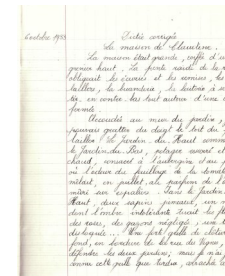 6 octobre 1952 Dictée corrigée
La maison de Claudine.
La maison était grande, coiffée d'un
grenier haut. La pente raide de la
obligeait les écuries et les remises, les
laillers, la buanderie, la laiterie à se
ter, en contre-bas tout autour d'une
fermée.
Accoudée au mur du jardin,
pouvais gratter du doigt le toit du
lailler. Le Jardin-du-Haut comma
Jardin-du-Bas, potager resserré et
chaud, consacré à l'aubergine et au
où l'odeur du feuillage de la tomate
mêlait, en juillet, au parfum de l'
mûri sur espaliers. Dans le Jardin-
Haut, deux sapins jumeaux, un
dont l'ombre intolérante tuait les
des roses, des gazons négligés, une
disloquée... Une forte grille de clôture
fond, en bordure de la rue de Vignes,
défendre les deux jardins; mais je n'ai
connu cette grille que tordue, arrachée